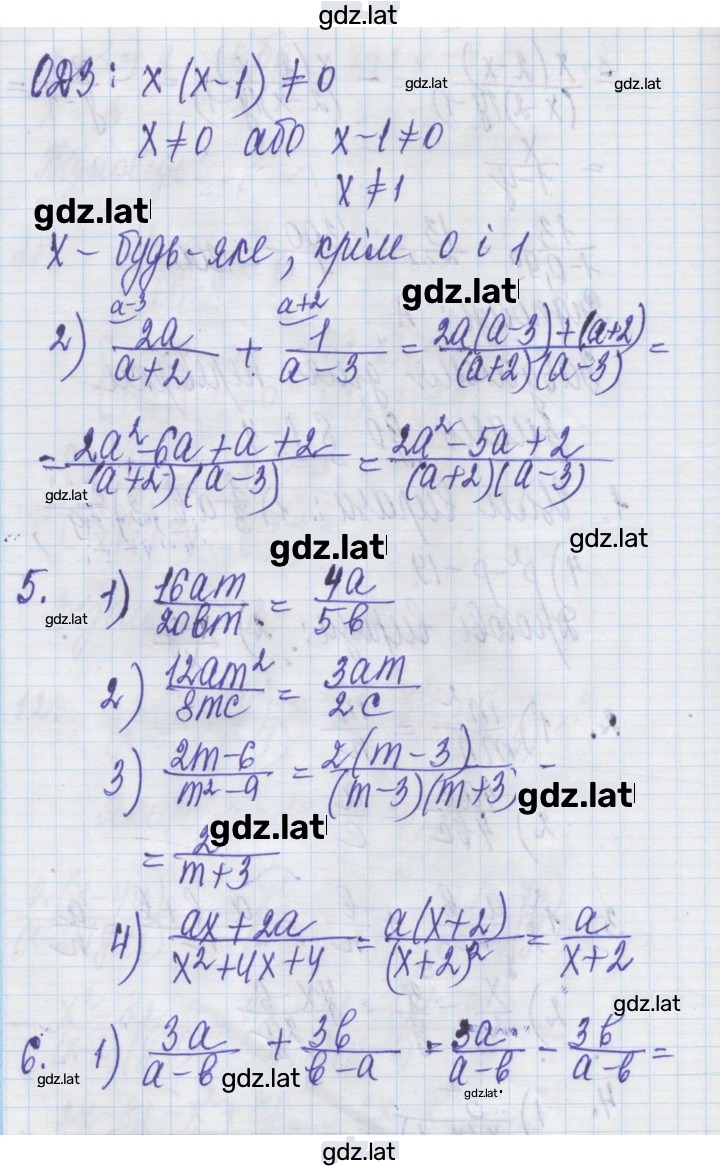 gdz.lat
ОДЗ: x(x-1)≠0
gdz.lat gdz.lat
x≠0 або x-1≠0
x≠1
gdz.lat
x - будь-яке, крім 0 і 1
gdz.lat
a-3 a+2
2) 2a/(a+2) + 1/(a-3) = (2a(a-3)+(a+2))/((a+2)(a-3)) =
= (2a²-6a+a+2)/((a+2)(a-3)) = (2a²-5a+2)/((a+2)(a-3))
gdz.lat
gdz.lat gdz.lat
5. 1) 16am/20bm = 4a/5b
gdz.lat
2) 12am²/8mc = 3am/2c
3) (2m-6)/(m²-9) = 2(m-3)/((m-3)(m+3)) =
gdz.lat
gdz.lat
= 2/(m+3)
4) (ax+2a)/(x²+4x+4) = a(x+2)/(x+2)² = a/(x+2)
gdz.lat
6. 1) 3a/(a-b) + 3b/(b-a) = 3a/(a-b) - 3b/(a-b) =
gdz.lat gdz.lat gdz.lat
gdz.lat